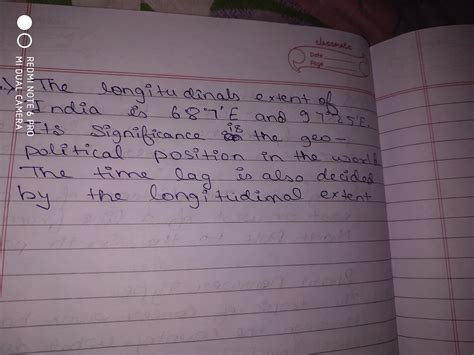 classmate
Date
Page
.) The longitudinals extent of
India is 687'E and 97°25'E.
its significance is the geo-
political position in the world
The time lag is also decided
by the longitudimal extent
REDMI NOTE 6 PRO
MI DUAL CAMERA